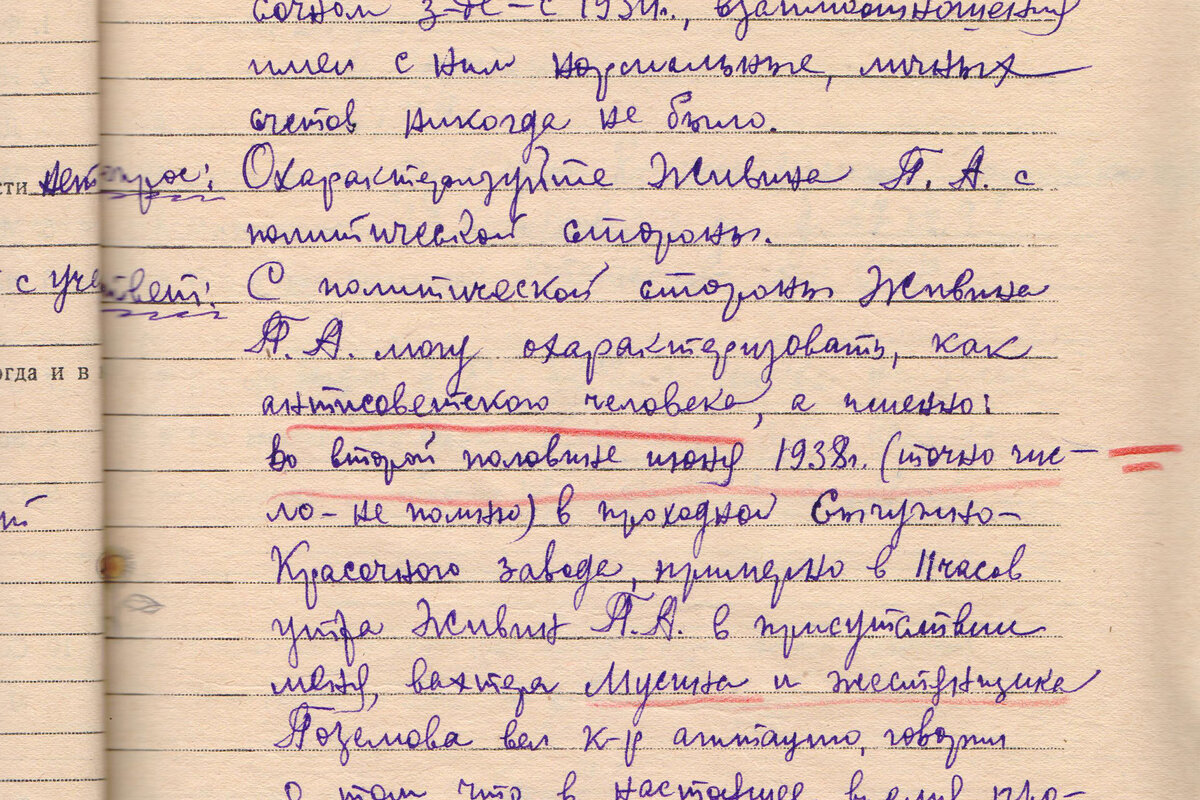 сочном з-де - с 1934г., взаимоотношения
имел с ним нормальные, личных
счетов никогда не было.
сти нет прос: Охарактеризуйте Живина П. А. с
политической стороны.
с уче твет: С политической стороны Живина
П. А. могу охарактеризовать, как
огда и в
антисоветского человека, а именно:
во второй половине июня 1938г. (точно чис-
ло - не помню) в проходной Стружно-
Красочного завода, примерно в 11 часов
утра Живин П. А. в присутствии
меня, вахтера Мусина и жестянщика
Поземова вел к-р агитацию, говорил
о том что в настоящее время про-